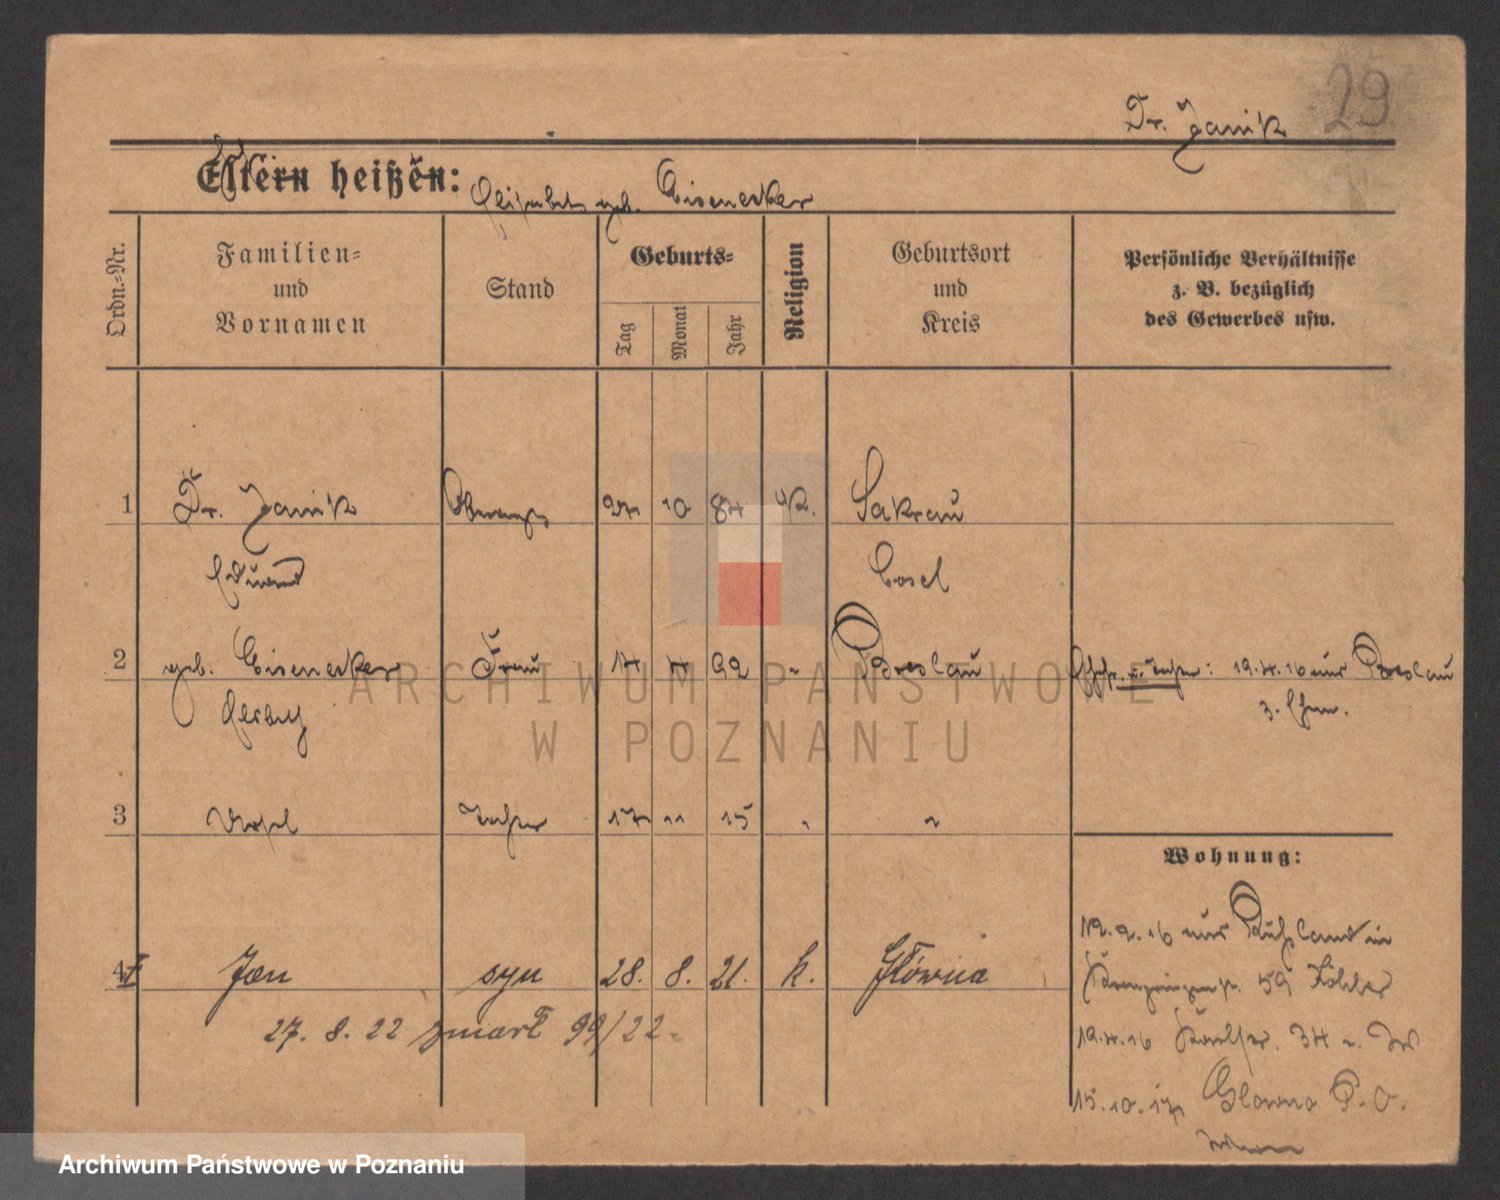 29
Dr. Janik
Eltern heißen:
geb. Eisenecker
Ordn.=Nr.
Familien=
und
Vornamen
Stand
Geburts=
Tag
Monat
Jahr
Religion
Geburtsort
und
Kreis
Persönliche Verhältnisse
z. B. bezüglich
des Gewerbes usw.
1 Dr. Janik 27 10 84 K. Sakrau
Eduard Cosel
2 geb. Eisenecker Frau 14 4 92 " Breslau 19.4.16 aus Breslau
3 17 11 15 " "
Wohnung:
12.2.16 aus Rußland in
59
4 Jan syn 28. 8. 21. k. Główna
27. 8. 22 zmarł 99/22.
19.4.16 34
15.10.17 Glowna P. O.
ARCHIWUM PAŃSTWOWE
W POZNANIU
Archiwum Państwowe w Poznaniu